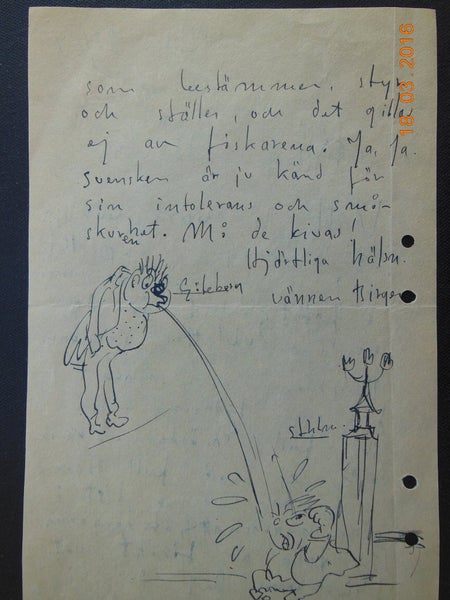 som bestämmer, styr
och ställer, och det gillas
ej av fiskarena. Ja, Ja.
Svensken är ju känd för
sin intolerans och små-
skurenhet. Må de kivas!
Hjärtliga hälsn.
vännen Birger
Göteborg
sthlm.
18.03.2016